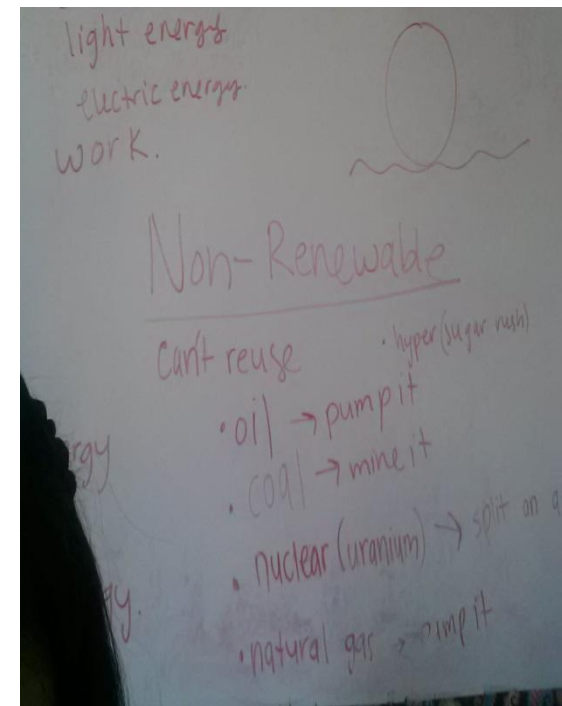 light energy
electric energy.
work.
Non-Renewable
Can't reuse
• hyper (sugar rush)
• oil → pump it
• coal → mine it
rgy
• nuclear (uranium) → split an a
gy.
• natural gas → pump it